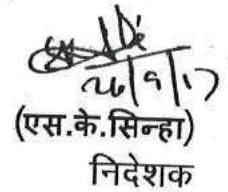 26/9/17
(एस.के.सिन्हा)
निदेशक